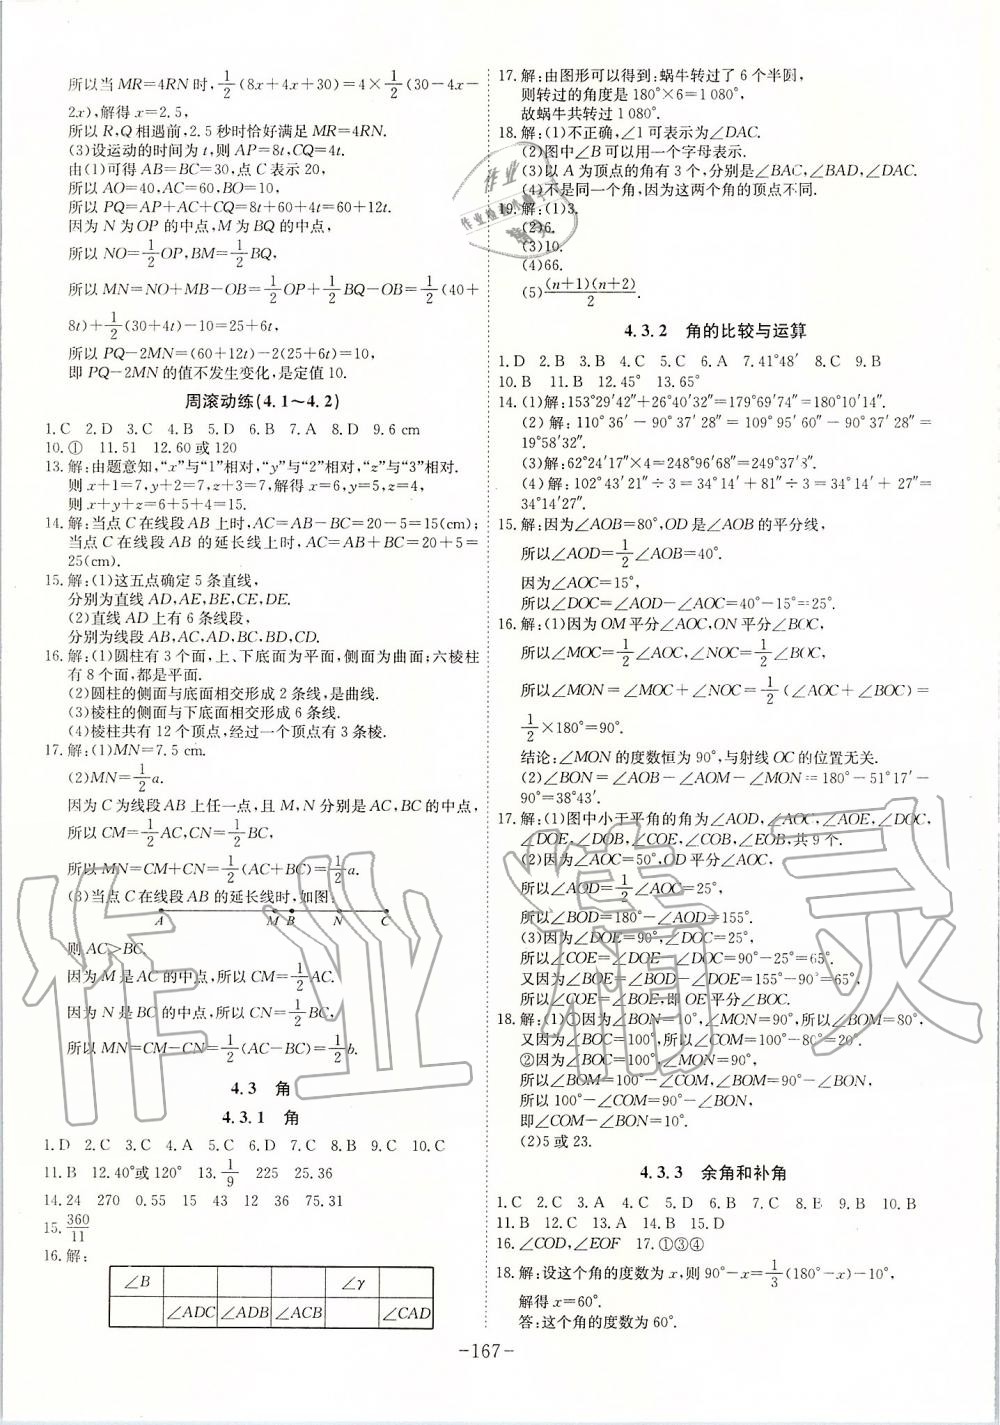 所以当 MR=4RN 时,1/2(8x+4x+30)=4×1/2(30-4x-
2x),解得 x=2.5,
所以 R,Q 相遇前,2.5 秒时恰好满足 MR=4RN.
(3)设运动的时间为 t,则 AP=8t,CQ=4t.
由(1)可得 AB=BC=30,点 C 表示 20,
所以 AO=40,AC=60,BO=10,
所以 PQ=AP+AC+CQ=8t+60+4t=60+12t.
因为 N 为 OP 的中点,M 为 BQ 的中点,
所以 NO=1/2OP,BM=1/2BQ,
所以 MN=NO+MB-OB=1/2OP+1/2BQ-OB=1/2(40+
8t)+1/2(30+4t)-10=25+6t,
所以 PQ-2MN=(60+12t)-2(25+6t)=10.
即 PQ-2MN 的值不发生变化,是定值 10.
周滚动练(4.1～4.2)
1.C 2.D 3.C 4.B 5.D 6.B 7.A 8.D 9.6 cm
10.① 11.51 12.60 或 120
13.解:由题意知,“x”与“1”相对,“y”与“2”相对,“z”与“3”相对.
则 x+1=7,y+2=7,z+3=7,解得 x=6,y=5,z=4,
则 x+y+z=6+5+4=15.
14.解:当点 C 在线段 AB 上时,AC=AB-BC=20-5=15(cm);
当点 C 在线段 AB 的延长线上时,AC=AB+BC=20+5=
25(cm).
15.解:(1)这五点确定 5 条直线,
分别为直线 AD,AE,BE,CE,DE.
(2)直线 AD 上有 6 条线段,
分别为线段 AB,AC,AD,BC,BD,CD.
16.解:(1)圆柱有 3 个面,上、下底面为平面,侧面为曲面;六棱柱
有 8 个面,都是平面.
(2)圆柱的侧面与底面相交形成 2 条线,是曲线.
(3)棱柱的侧面与下底面相交形成 6 条线.
(4)棱柱共有 12 个顶点,经过一个顶点有 3 条棱.
17.解:(1)MN=7.5 cm.
(2)MN=1/2a.
因为 C 为线段 AB 上任一点,且 M,N 分别是 AC,BC 的中点,
所以 CM=1/2AC,CN=1/2BC,
所以 MN=CM+CN=1/2(AC+BC)=1/2a.
(3)当点 C 在线段 AB 的延长线时,如图:
A M B N C
则 AC>BC.
因为 M 是 AC 的中点,所以 CM=1/2AC.
因为 N 是 BC 的中点,所以 CN=1/2BC,
所以 MN=CM-CN=1/2(AC-BC)=1/2b.
4.3 角
4.3.1 角
1.D 2.C 3.C 4.A 5.C 6.D 7.C 8.B 9.C 10.C
11.B 12.40°或 120° 13.1/9 225 25.36
14.24 270 0.55 15 43 12 36 75.31
15.360/11
16.解:
∠B ∠γ
∠ADC ∠ADB ∠ACB ∠CAD
17.解:由图形可以得到:蜗牛转过了 6 个半圆,
则转过的角度是 180°×6=1 080°.
故蜗牛共转过 1 080°.
18.解:(1)不正确,∠1 可表示为∠DAC.
(2)图中∠B 可以用一个字母表示.
(3)以 A 为顶点的角有 3 个,分别是∠BAC,∠BAD,∠DAC.
(4)不是同一个角,因为这两个角的顶点不同.
19.解:(1)3.
(2)6.
(3)10.
(4)66.
(5)(n+1)(n+2)/2.
4.3.2 角的比较与运算
1.D 2.B 3.B 4.C 5.C 6.A 7.41°48′ 8.C 9.B
10.B 11.B 12.45° 13.65°
14.(1)解:153°29′42″+26°40′32″=179°69′74″=180°10′14″.
(2)解:110°36′-90°37′28″=109°95′60″-90°37′28″=
19°58′32″.
(3)解:62°24′17″×4=248°96′68″=249°37′8″.
(4)解:102°43′21″÷3=34°14′+81″÷3=34°14′+27″=
34°14′27″.
15.解:因为∠AOB=80°,OD 是∠AOB 的平分线,
所以∠AOD=1/2∠AOB=40°.
因为∠AOC=15°,
所以∠DOC=∠AOD-∠AOC=40°-15°=25°.
16.解:(1)因为 OM 平分∠AOC,ON 平分∠BOC,
所以∠MOC=1/2∠AOC,∠NOC=1/2∠BOC,
所以∠MON=∠MOC+∠NOC=1/2(∠AOC+∠BOC)=
1/2×180°=90°.
结论:∠MON 的度数恒为 90°,与射线 OC 的位置无关.
(2)∠BON=∠AOB-∠AOM-∠MON=180°-51°17′-
90°=38°43′.
17.解:(1)图中小于平角的角为∠AOD,∠AOC,∠AOE,∠DOC,
∠DOE,∠DOB,∠COE,∠COB,∠EOB,共 9 个.
(2)因为∠AOC=50°,OD 平分∠AOC,
所以∠AOD=1/2∠AOC=25°,
所以∠BOD=180°-∠AOD=155°.
(3)因为∠DOE=90°,∠DOC=25°,
所以∠COE=∠DOE-∠DOC=90°-25°=65°.
又因为∠BOE=∠BOD-∠DOE=155°-90°=65°,
所以∠COE=∠BOE,即 OE 平分∠BOC.
18.解:(1)①因为∠BON=10°,∠MON=90°,所以∠BOM=80°.
又因为∠BOC=100°,所以∠COM=100°-80°=20°.
②因为∠BOC=100°,∠MON=90°,
所以∠BOM=100°-∠COM=90°-∠BON,
所以 100°-∠COM=90°-∠BON,
即∠COM-∠BON=10°.
(2)5 或 23.
4.3.3 余角和补角
1.C 2.C 3.A 4.C 5.D 6.B 7.B 8.B 9.B 10.B
11.B 12.C 13.A 14.B 15.D
16.∠COD,∠EOF 17.①③④
18.解:设这个角的度数为 x,则 90°-x=1/3(180°-x)-10°,
解得 x=60°.
答:这个角的度数为 60°.
-167-
作业精灵